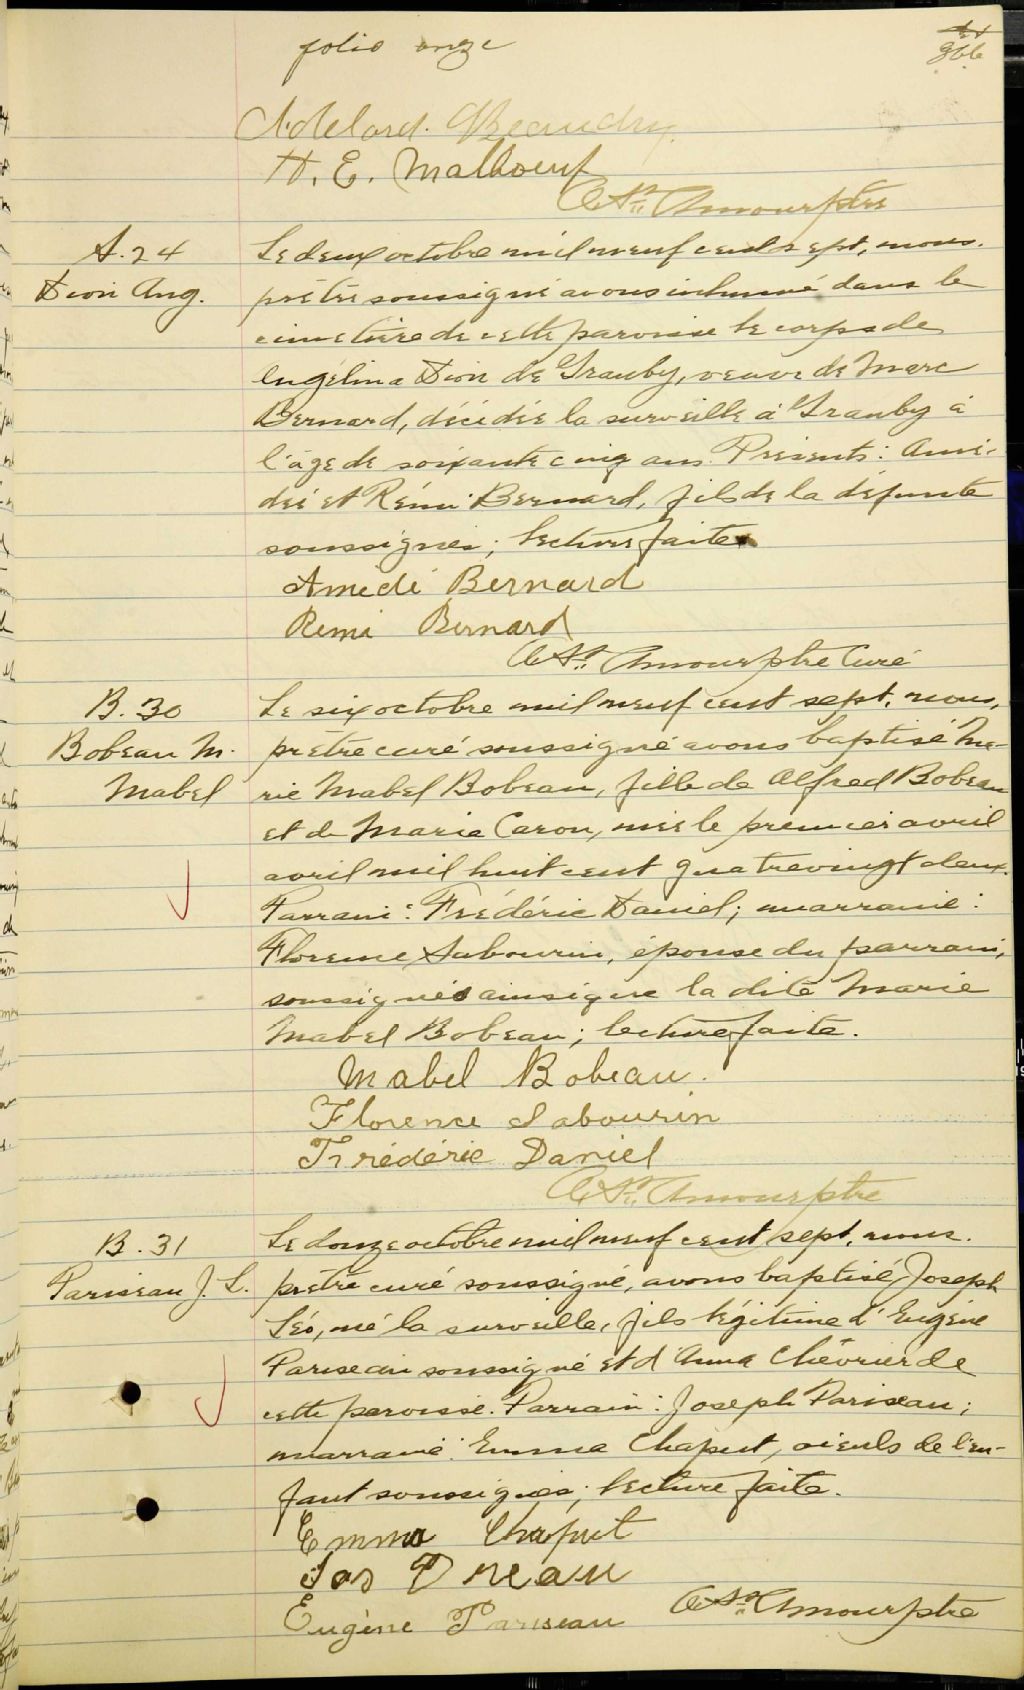 folio onze
366
Adelard. Beaudry.
H. E. Malboeuf
A St. Amour ptre
S. 24
Dion Ang.
Le deux octobre mil neuf cent sept, nous.
prêtre soussigné avons inhumé dans le
cimetière de cette paroisse le corps de
Angélina Dion de Granby, veuve de Marc
Bernard, décédée la surveille à Granby à
l'âge de soixante cinq ans. Présents: Amé-
dée et Rémi Bernard, fils de la défunte
soussignés; lecture faite
Amedé Bernard
Remi Bernard
A St. Amour ptre Curé
B. 30
Bobeau M.
Mabel
Le six octobre mil neuf cent sept, nous,
prêtre curé soussigné avons baptisé Ma-
rie Mabel Bobeau, fille de Alfred Bobeau
et de Marie Caron, née le premier avril
avril mil huit cent quatrevingt deux.
Parrain: Frédéric Daniel; marraine:
Florence Sabourin, épouse du parrain,
soussignés ainsi que la dite Marie
Mabel Bobeau; lecture faite.
Mabel Bobeau.
Florence Sabourin
Frédéric Daniel
A St. Amour ptre
B. 31
Pariseau J. L.
Le douze octobre mil neuf cent sept, nous.
prêtre curé soussigné, avons baptisé, Joseph
Léo, né la surveille, fils légitime d'Eugène
Pariseau soussigné et d'Anna Chévrier de
cette paroisse. Parrain: Joseph Pariseau;
marraine: Emma Chaput, aïeuls de l'en-
fant soussignés; lecture faite.
Emma Chaput
Jos
Eugène Pariseau
A St. Amour ptre